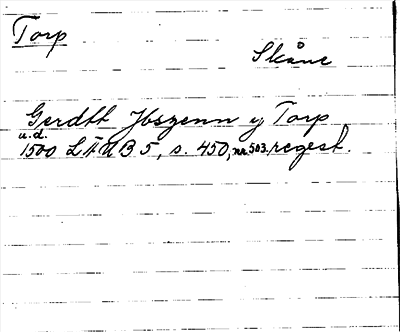 Torp
Skåne
Gerdtt Jbszenn y Torp
u.d.
1500 LÄUB 5, s. 450, nr. 503. regest.